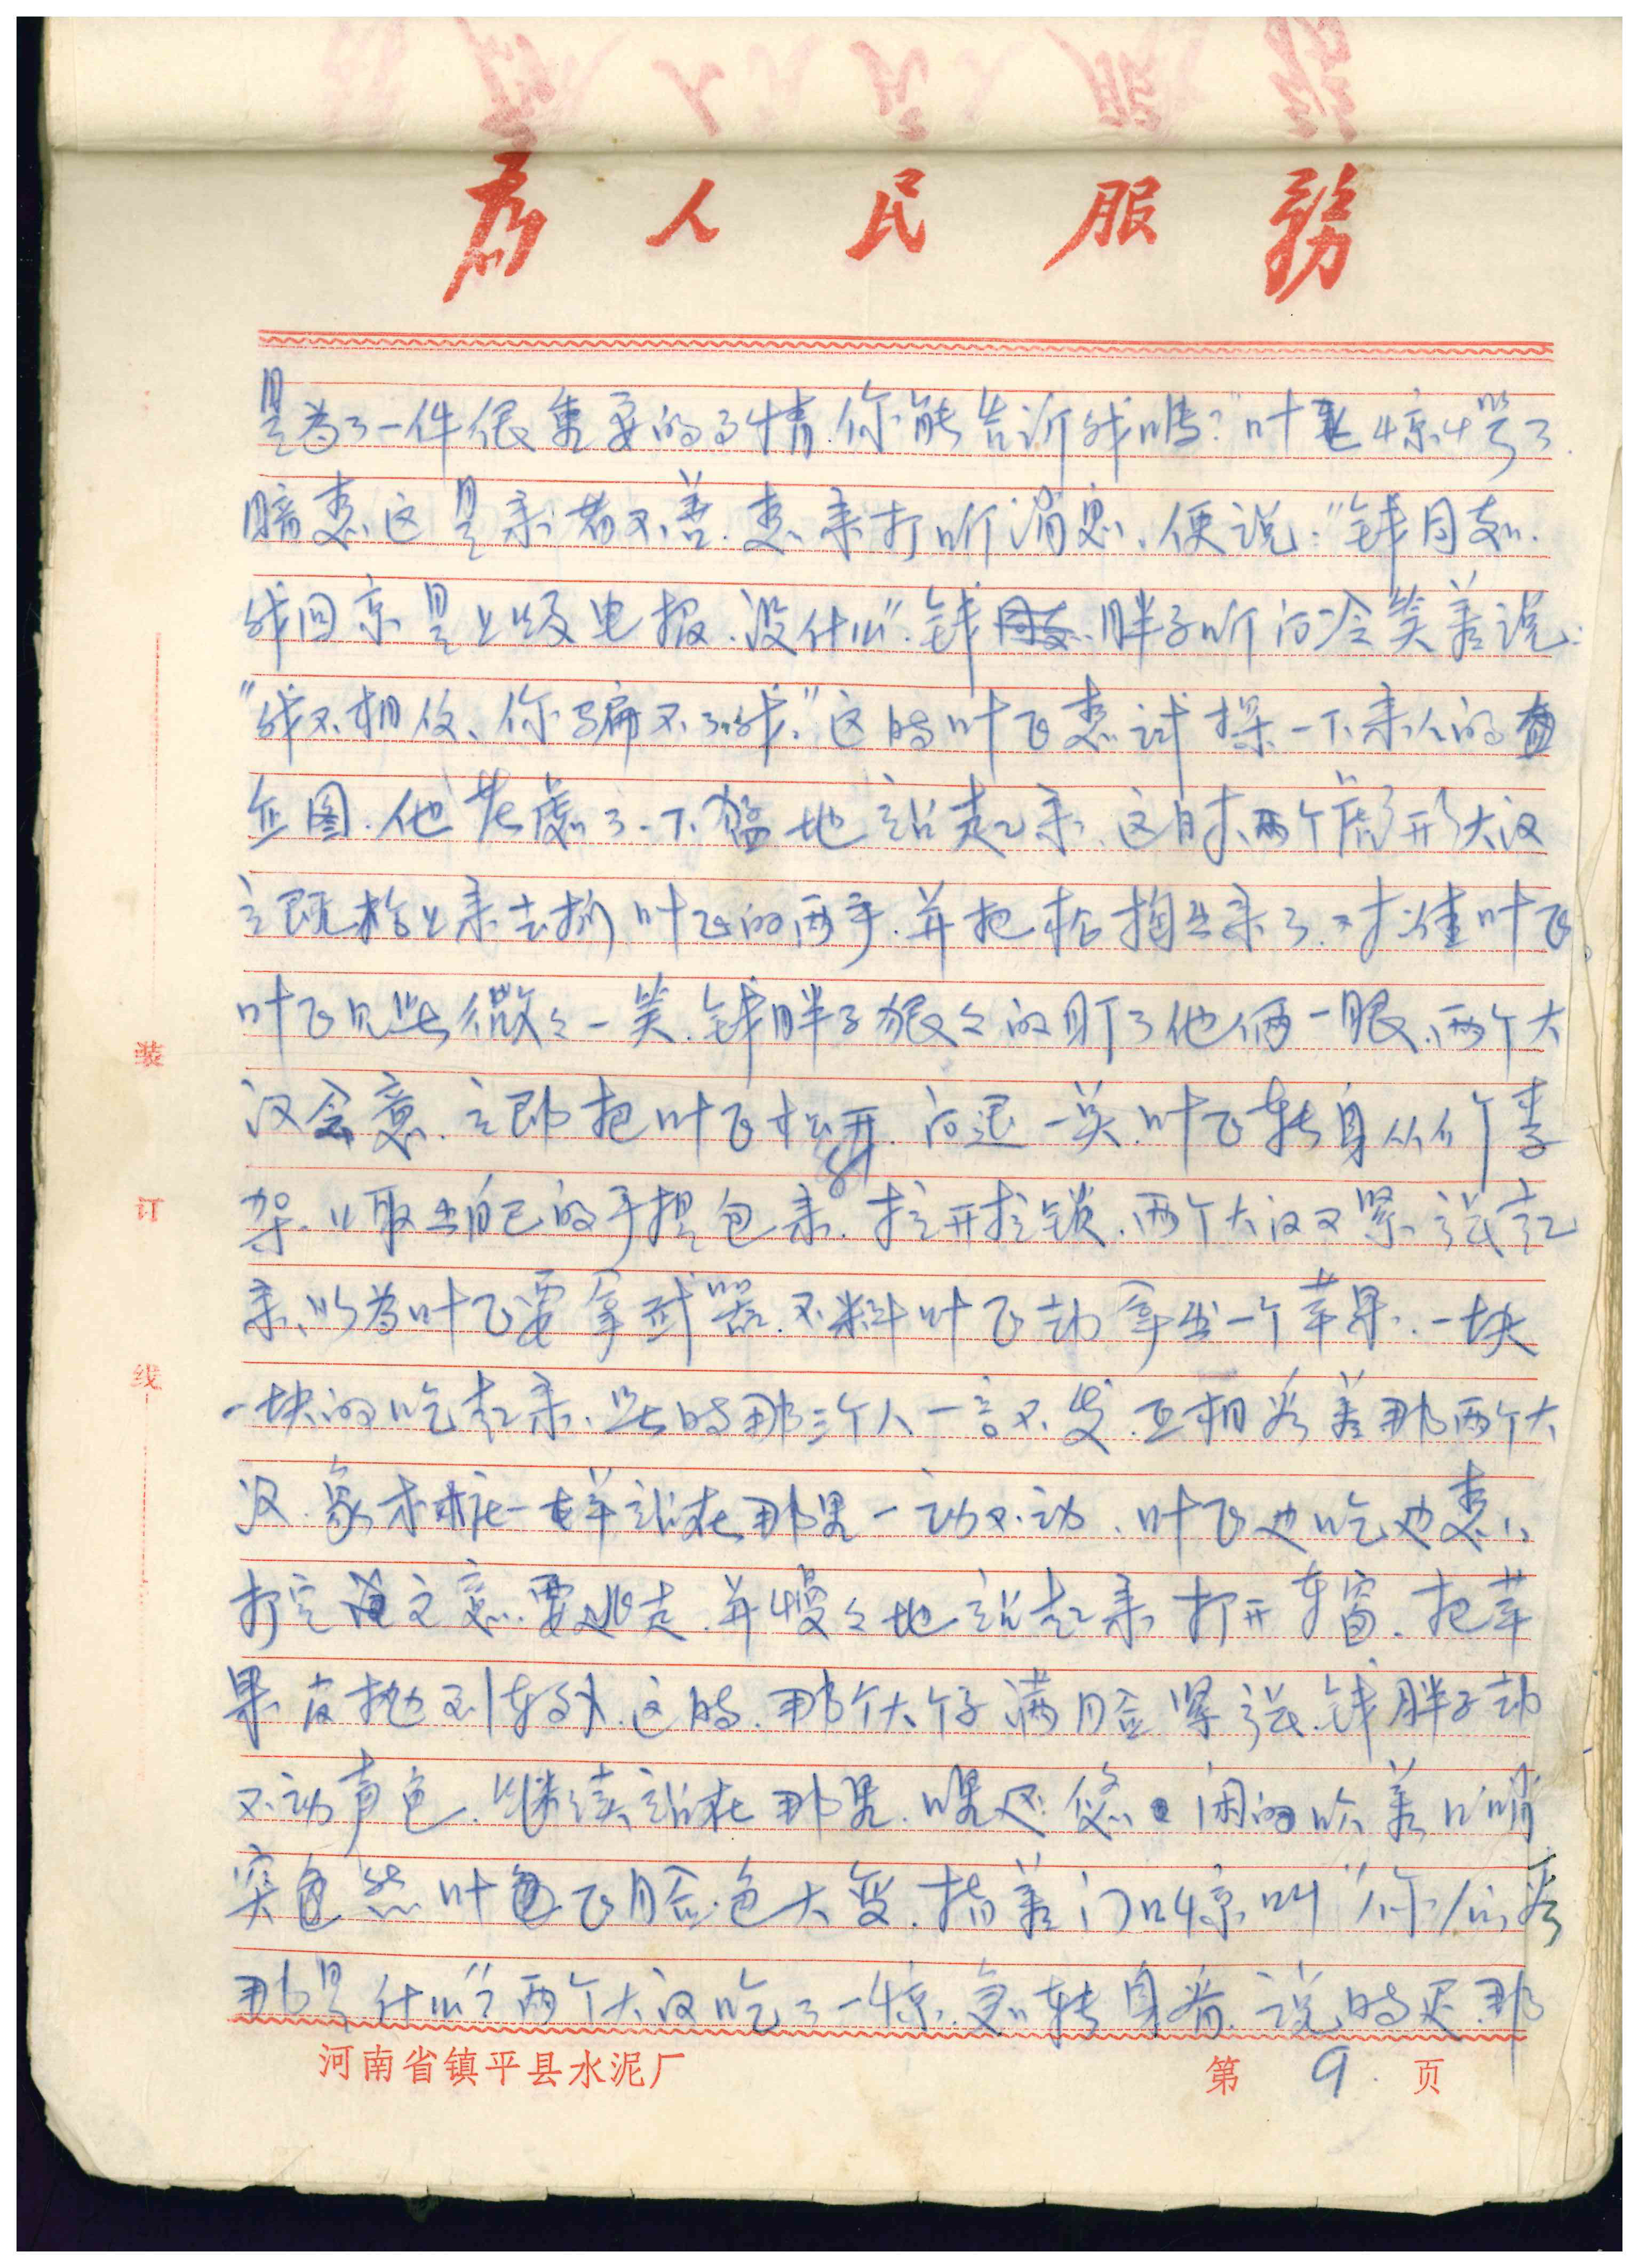 為人民服務
是为了一件很重要的事情.你能告诉我吗?"叶飞惊愕了.
暗想.这是来者不善.想来打听消息.便说:"钱同志.
我回京是上级电报.没什么".钱胖子听问冷笑着说:
"我不相信、你骗不了我."这时叶飞想试探一下来人的
企图.他考虑了一下.猛地站起来.这时.两个彪形大汉
立既抢上来去抓叶飞的两手.并把枪掏出来了.对准叶飞。
叶飞见此微々一笑.钱胖子狠々的盯了他俩一眼.两个大
汉会意.立即把叶飞松开.报以一笑.叶飞转身从行李
架上取出自己的手提包来.拉开拉锁.两个大汉又紧张起
来,以为叶飞要拿武器.不料叶飞却拿出一个苹果.一块
一块的吃起来.此时那三个人一言不发.互相看着那两个大
汉.象木桩一样站在那里一动不动.叶飞也吃也想,
打定主意.要逃走.并慢々地站起来打开车窗.把苹
果皮抛到车外.这时.那个大个子满脸紧张.钱胖子却
不动声色.继续站在那里.嘿还悠闲的吹着口哨.
突然叶飞脸色大变.指着门口惊叫"你们看
那是什么"?两个大汉吃了一惊.急转身看.说时迟.那
装
订
线
河南省镇平县水泥厂
第 9. 页